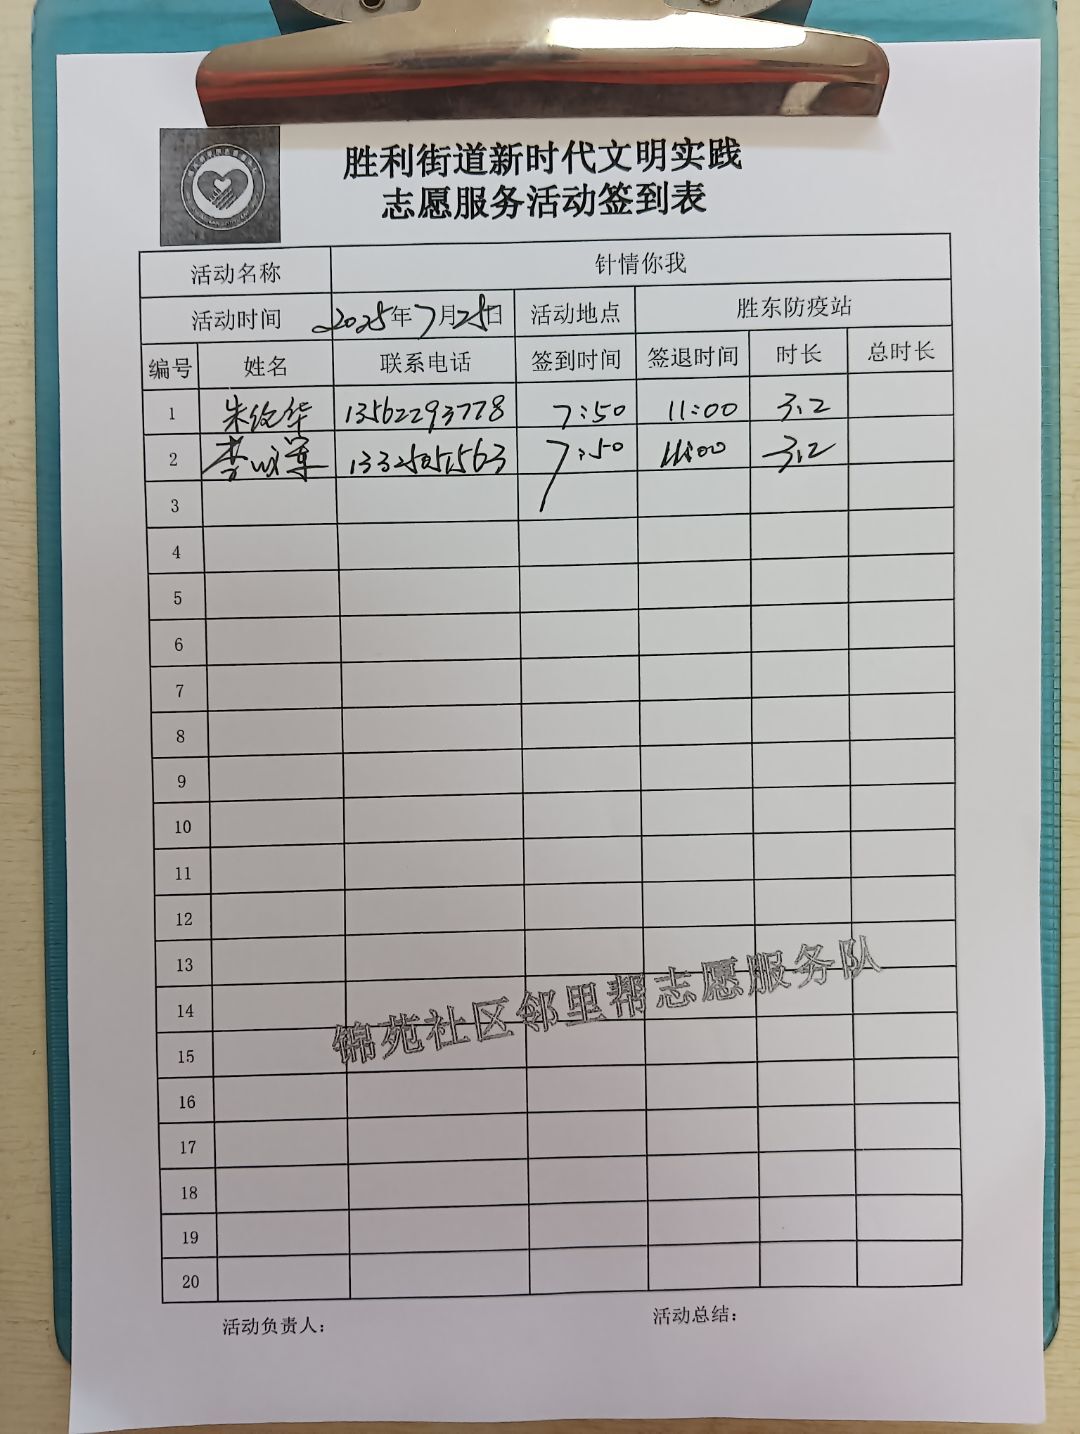 胜利街道新时代文明实践
志愿服务活动签到表
活动名称 针情你我
活动时间 2025年7月25日 活动地点 胜东防疫站
编号 姓名 联系电话 签到时间 签退时间 时长 总时长
1 朱纹华 13562293778 7:50 11:00 3.2
2 李 军 7:50 11:00 3.2
3
4
5
6
7
8
9
10
11
12
13
14
15
16
17
18
19
20
锦苑社区邻里帮志愿服务队
活动负责人: 活动总结: